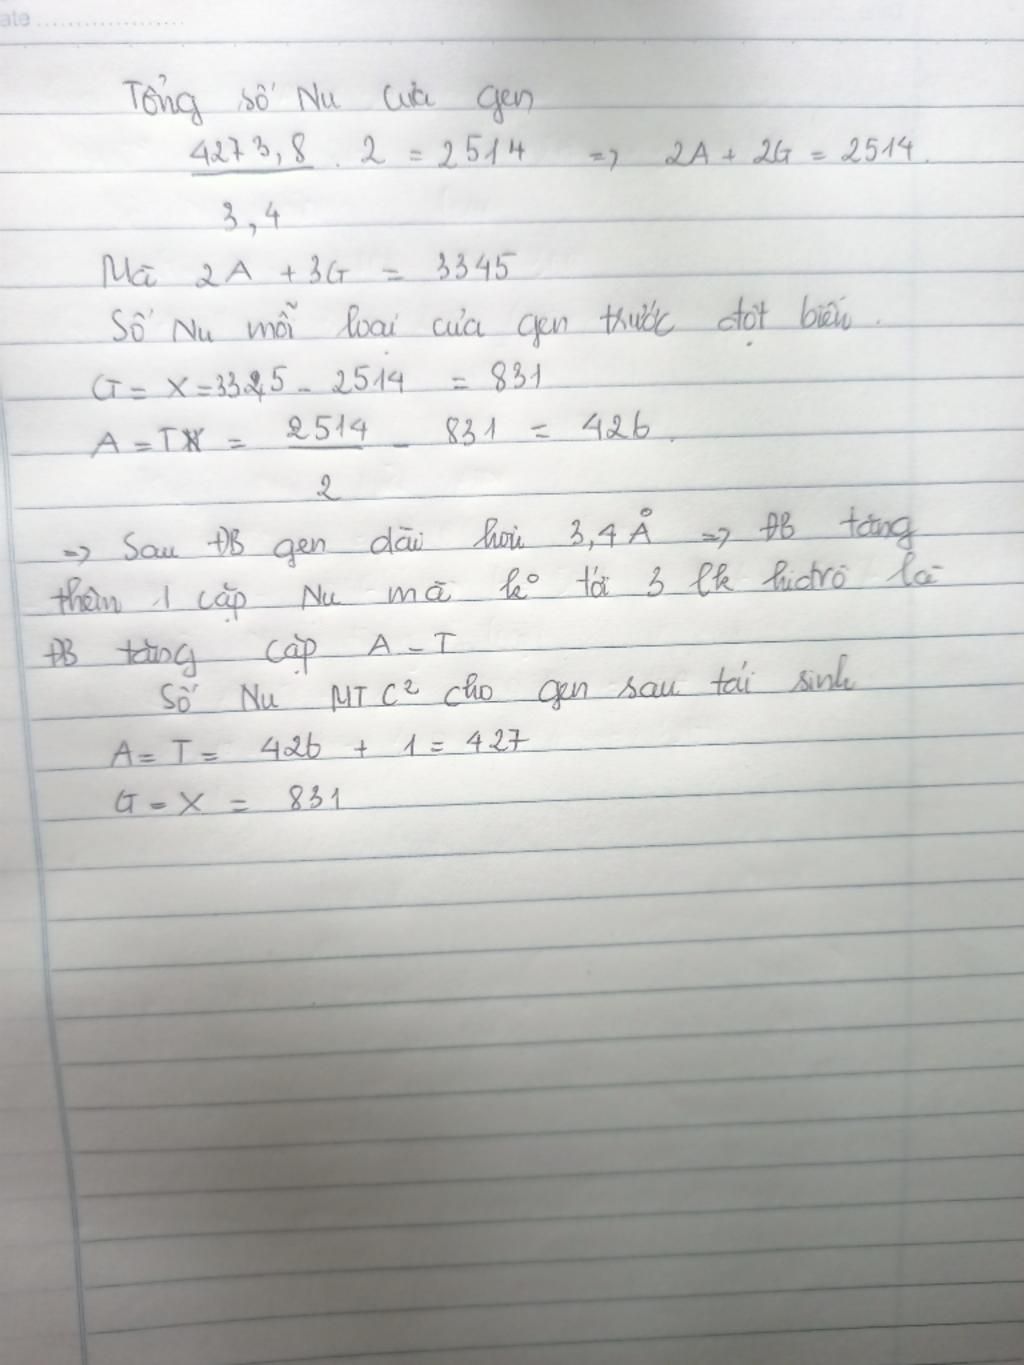 ate
Tổng số Nu của gen
4273,8 . 2 = 2514 => 2A + 2G = 2514.
3,4
Mà 2A + 3G = 3345
Số Nu mỗi loại của gen trước đột biến.
G = X = 3345 - 2514 = 831
A = T = 2514 - 831 = 426.
2
=> Sau ĐB gen dài hơn 3,4Å => ĐB tăng
thêm 1 cặp Nu mà k° tới 3 lk hidrô là
ĐB tăng cặp A - T
Số Nu MTC² cho gen sau tái sinh
A = T = 426 + 1 = 427
G = X = 831